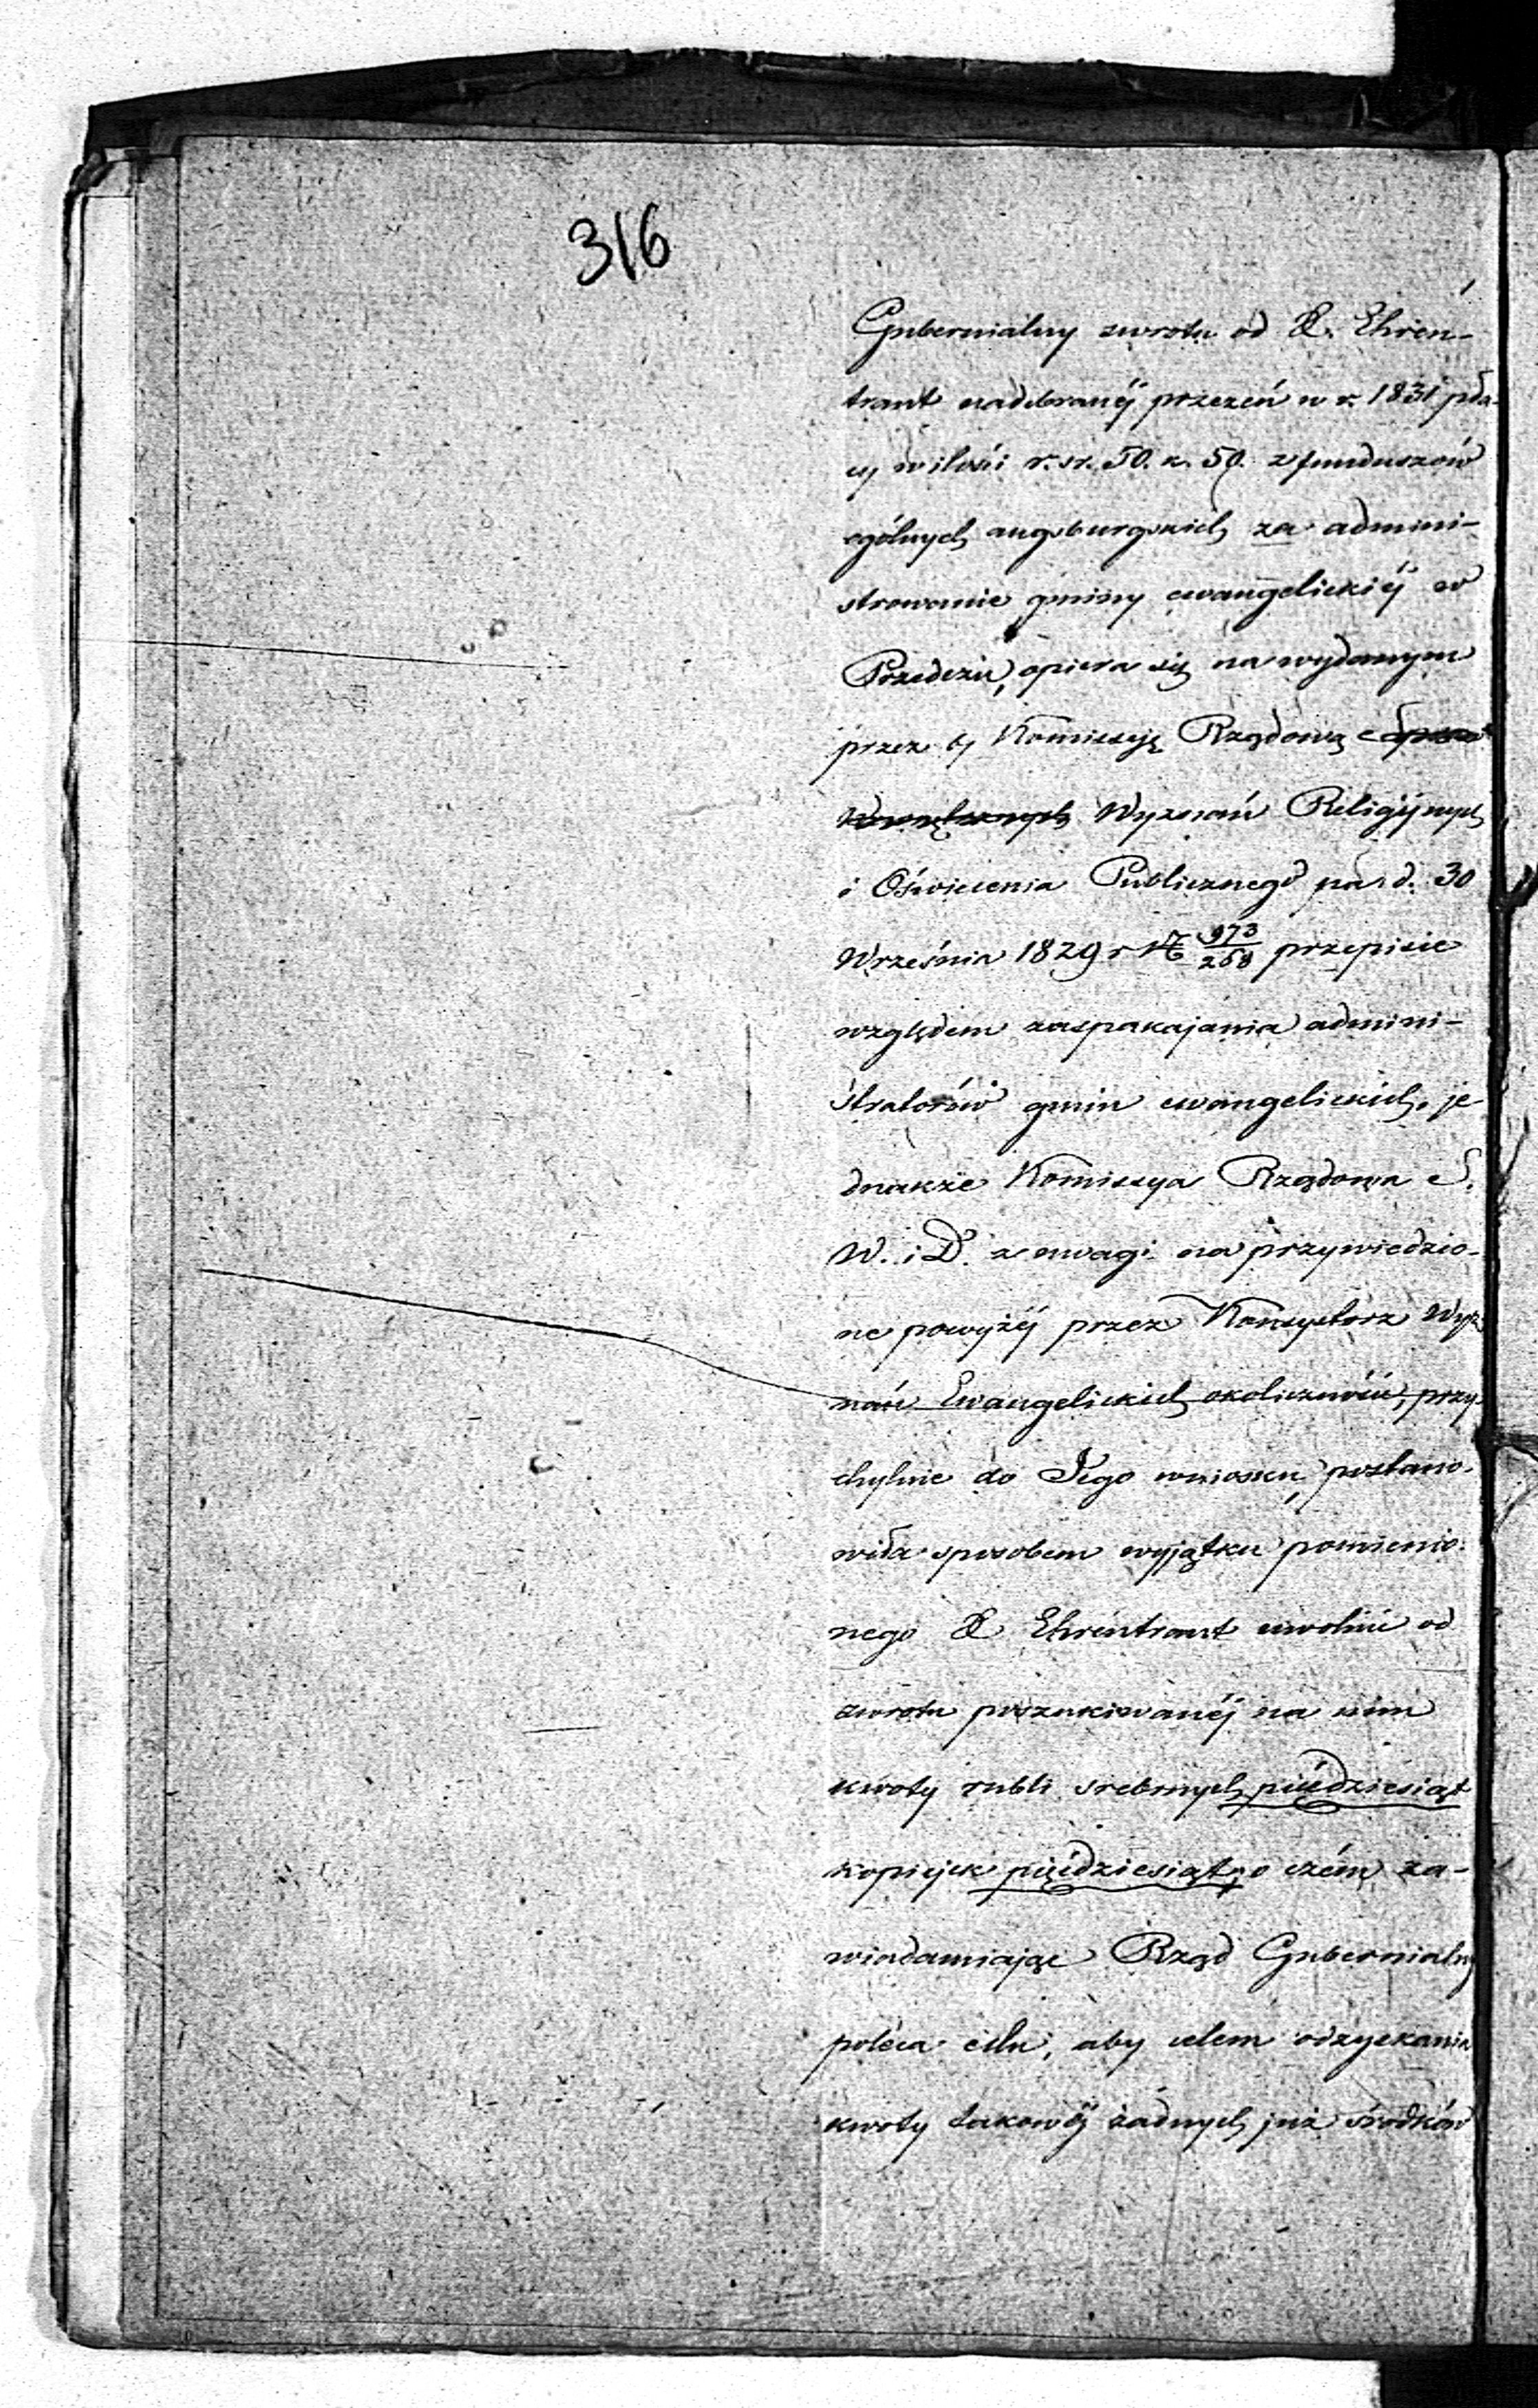 316
Gubernialny zwrotu od X. Ehren-
traut nadebranéj przezeń w r. 1831 pła-
cy w ilości r. sr. 50. k. 50. z funduszów
ogólnych augsburgskich za admini-
strowanie gminy ewangelickiéj w
Przedczu, opiera się na wydanym
przez b. Kommissyę Rządową Spraw
Wewnętrznych Wyznań Religijnych
i Oświecenia Publicznego pod d. 30
Września 1829 r № 973/268 przepisie
względem zaspakajania admini-
stratorów gmin ewangelickich, je-
dnakże Kommissya Rządowa S.
W. i D. z uwagi na przywiedzio-
ne powyżéj przez Konsystorz Wyz-
nań Ewangelickich okoliczności, przy-
chylnie do Jego wniosku, postano-
wiła sposobem wyjątku pomienio-
nego X Ehrentraut uwolnić od
zwrotu poszukiwanéj na nim
kwoty rubli srebrnych pięćdziesiąt
kopiejek pięćdziesiąt, o czém za-
wiadamiając Rząd Gubernialny
poleca mu, aby celem odzyskania
kwoty takowéj żadnych już środków